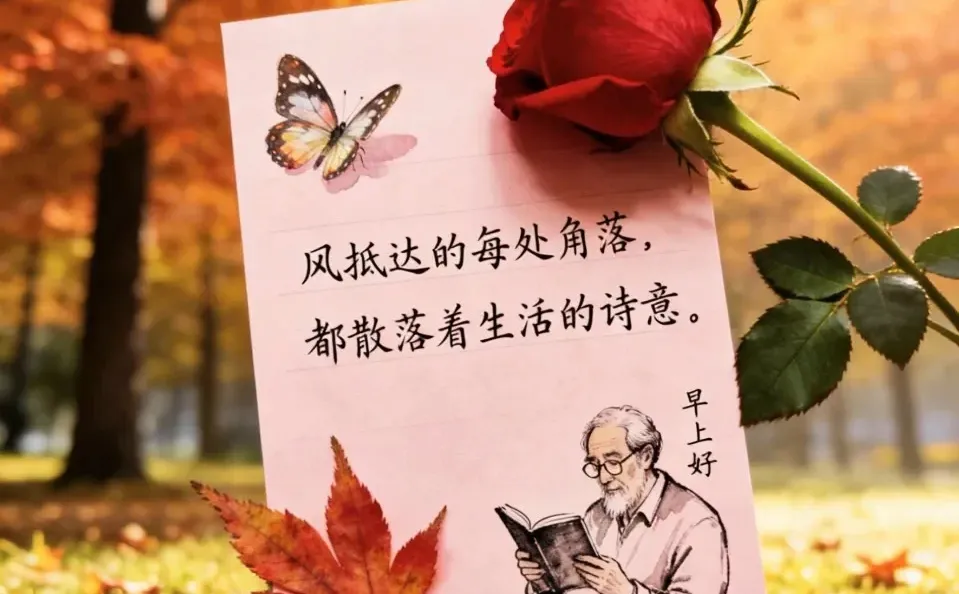 风抵达的每处角落，
都散落着生活的诗意。
早上好